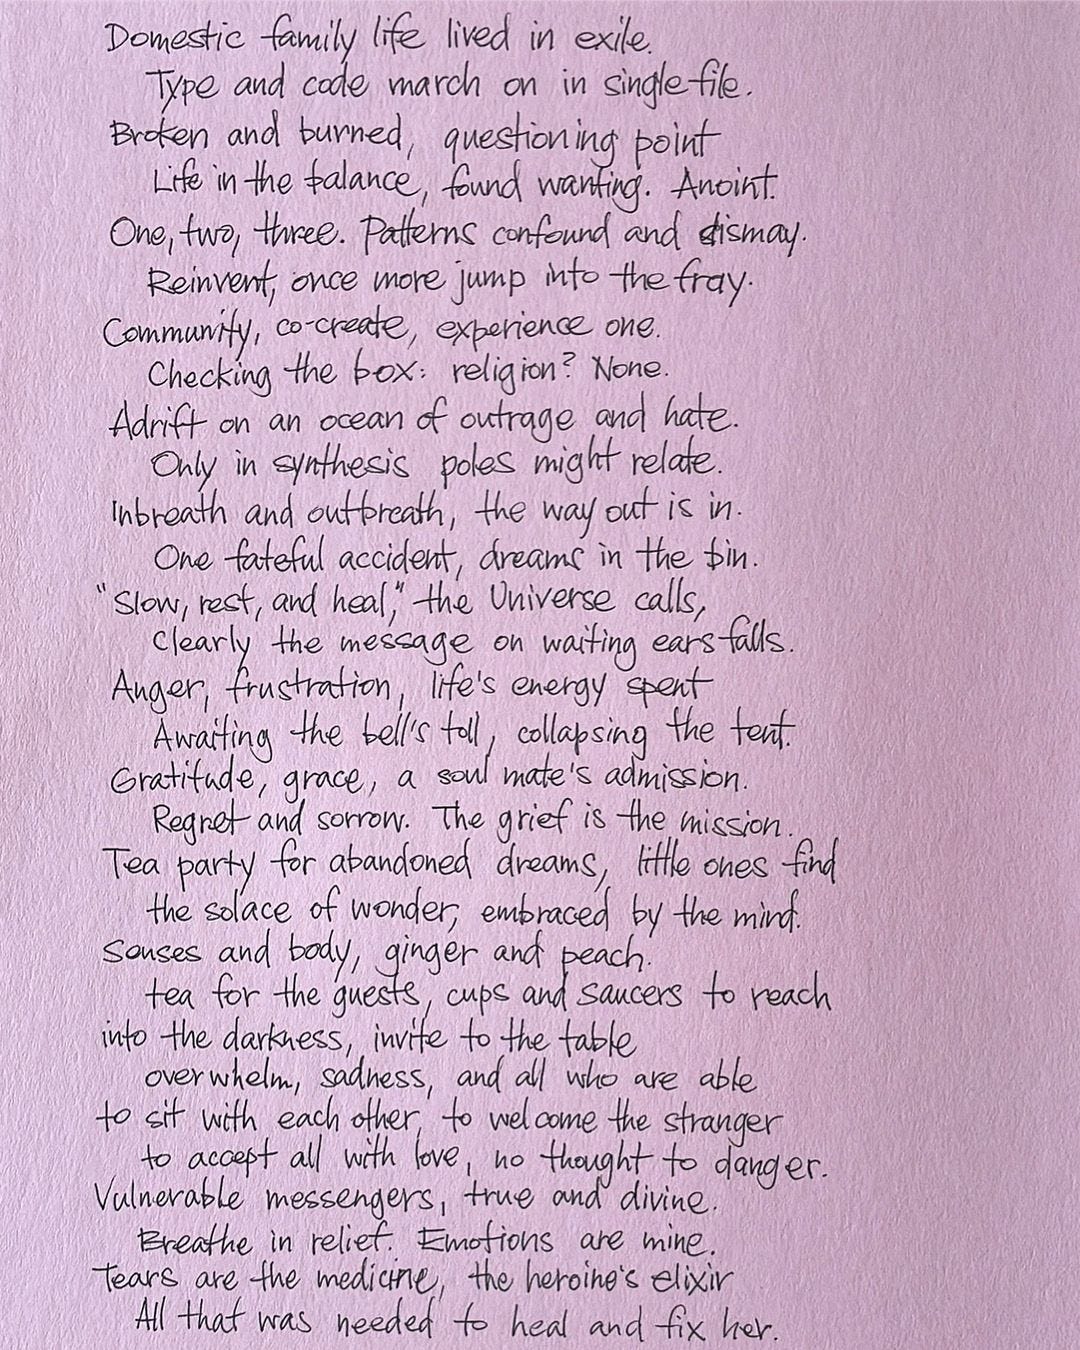 Domestic family life lived in exile.
Type and code march on in single file.
Broken and burned, questioning point
Life in the balance, found wanting. Anoint.
One, two, three. Patterns confound and dismay.
Reinvent, once more jump into the fray.
Community, co-create, experience one.
Checking the box: religion? None.
Adrift on an ocean of outrage and hate.
Only in synthesis poles might relate.
Inbreath and outbreath, the way out is in.
One fateful accident, dreams in the bin.
"Slow, rest, and heal," the Universe calls,
Clearly the message on waiting ears falls.
Anger, frustration, life's energy spent
Awaiting the bell's toll, collapsing the tent.
Gratitude, grace, a soul mate's admission.
Regret and sorrow. The grief is the mission.
Tea party for abandoned dreams, little ones find
the solace of wonder, embraced by the mind.
Senses and body, ginger and peach.
tea for the guests, cups and saucers to reach
into the darkness, invite to the table
overwhelm, sadness, and all who are able
to sit with each other, to welcome the stranger
to accept all with love, no thought to danger.
Vulnerable messengers, true and divine.
Breathe in relief. Emotions are mine.
Tears are the medicine, the heroine's elixir
All that was needed to heal and fix her.